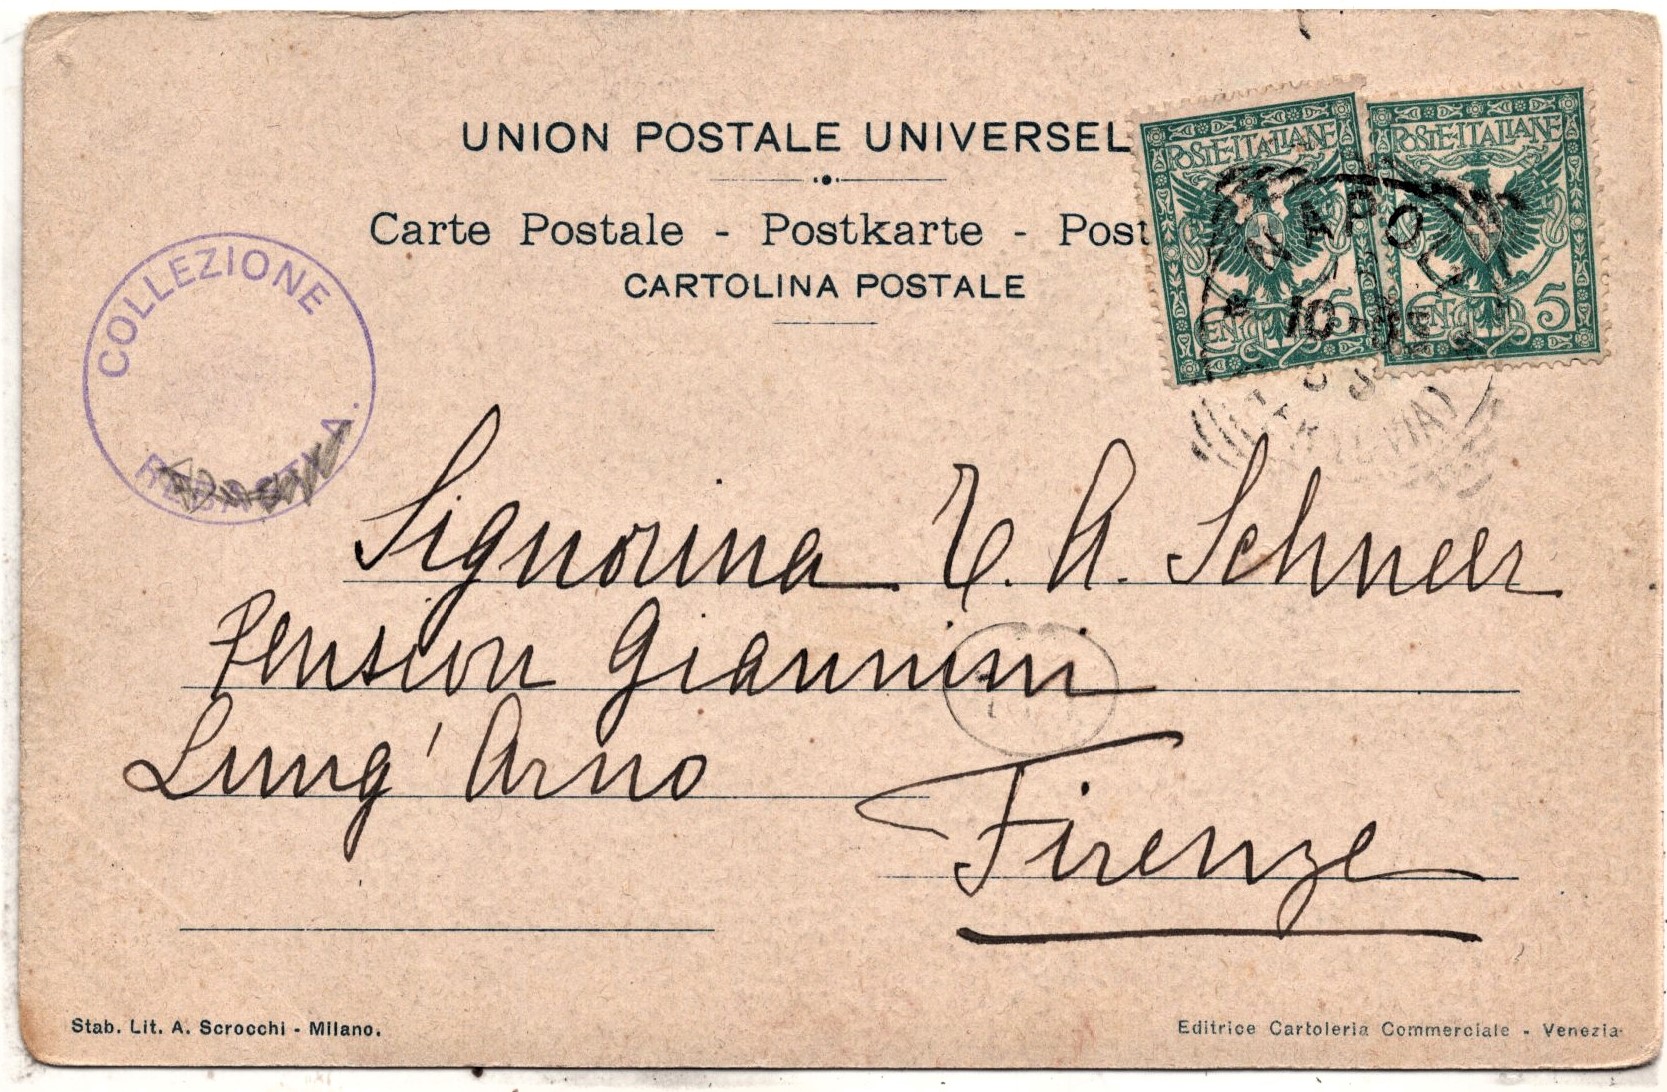 UNION POSTALE UNIVERSEL
Carte Postale - Postkarte - Post
CARTOLINA POSTALE
POSTE ITALIANE
CENT 5
POSTE ITALIANE
CENT 5
NAPOLI
10-
COLLEZIONE
A.
Signorina E. A. Schneer
Pension Giannini
Lung' Arno
Firenze
Stab. Lit. A. Scrocchi - Milano.
Editrice Cartoleria Commerciale - Venezia